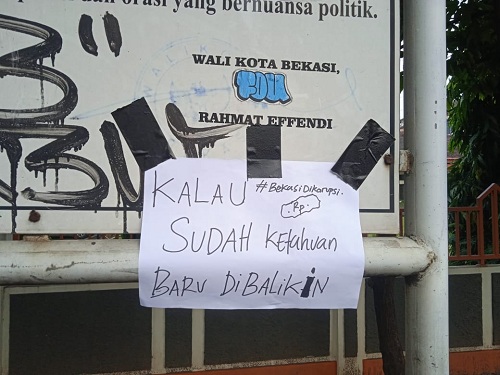 dan orasi yang bernuansa politik.
WALI KOTA BEKASI,
RAHMAT EFFENDI
KALAU #BekasiDikorupsi.
Rp.
SUDAH Ketahuan
BARU DiBALiKiN